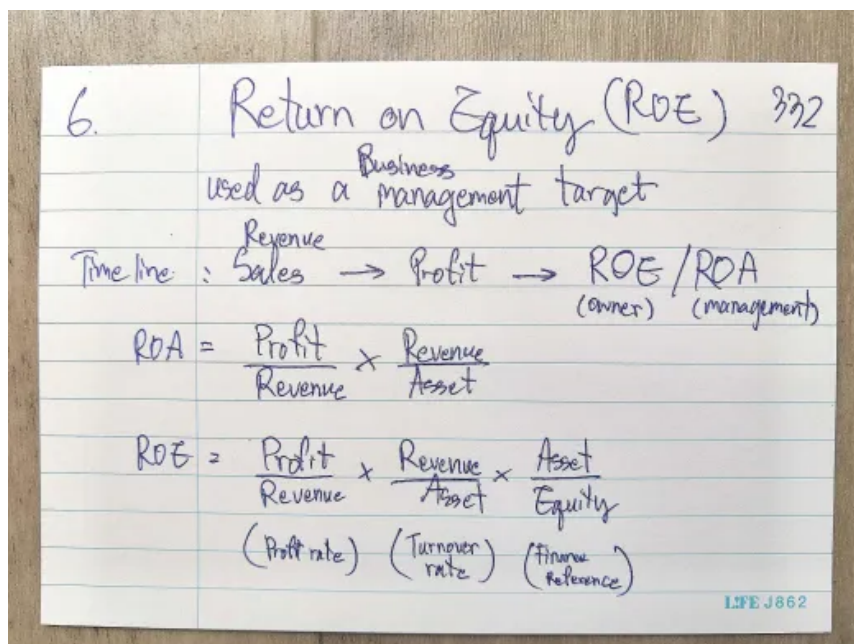 6. Return on Equity (ROE) 332
Business
used as a management target
Revenue
Time line : Sales → Profit → ROE / ROA
(owner) (management)
ROA = Profit × Revenue
Revenue Asset
ROE = Profit × Revenue × Asset
Revenue Asset Equity
(Profit rate) (Turnover (Finance
rate) Reference)
LIFE J862